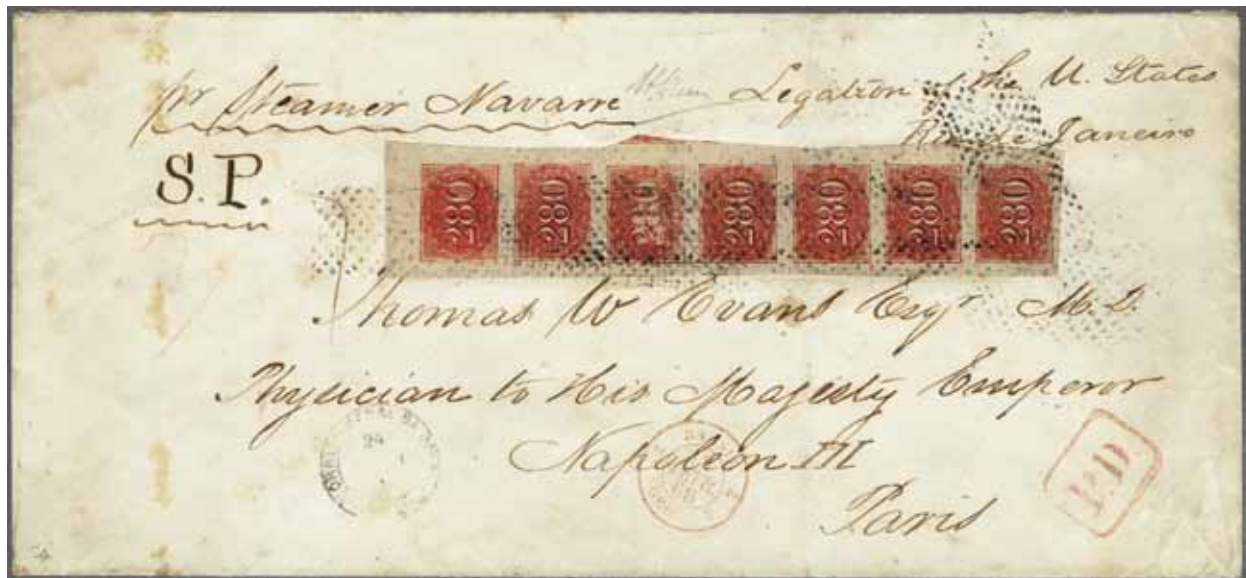 pr Steamer Navarre Legation of the U. States
Rio de Janeiro
S.P.
280 280 280 280 280 280 280
Thomas W Evans Esqr M.D.
Physician to His Majesty Emperor
Napoleon III
Paris
24
P.D